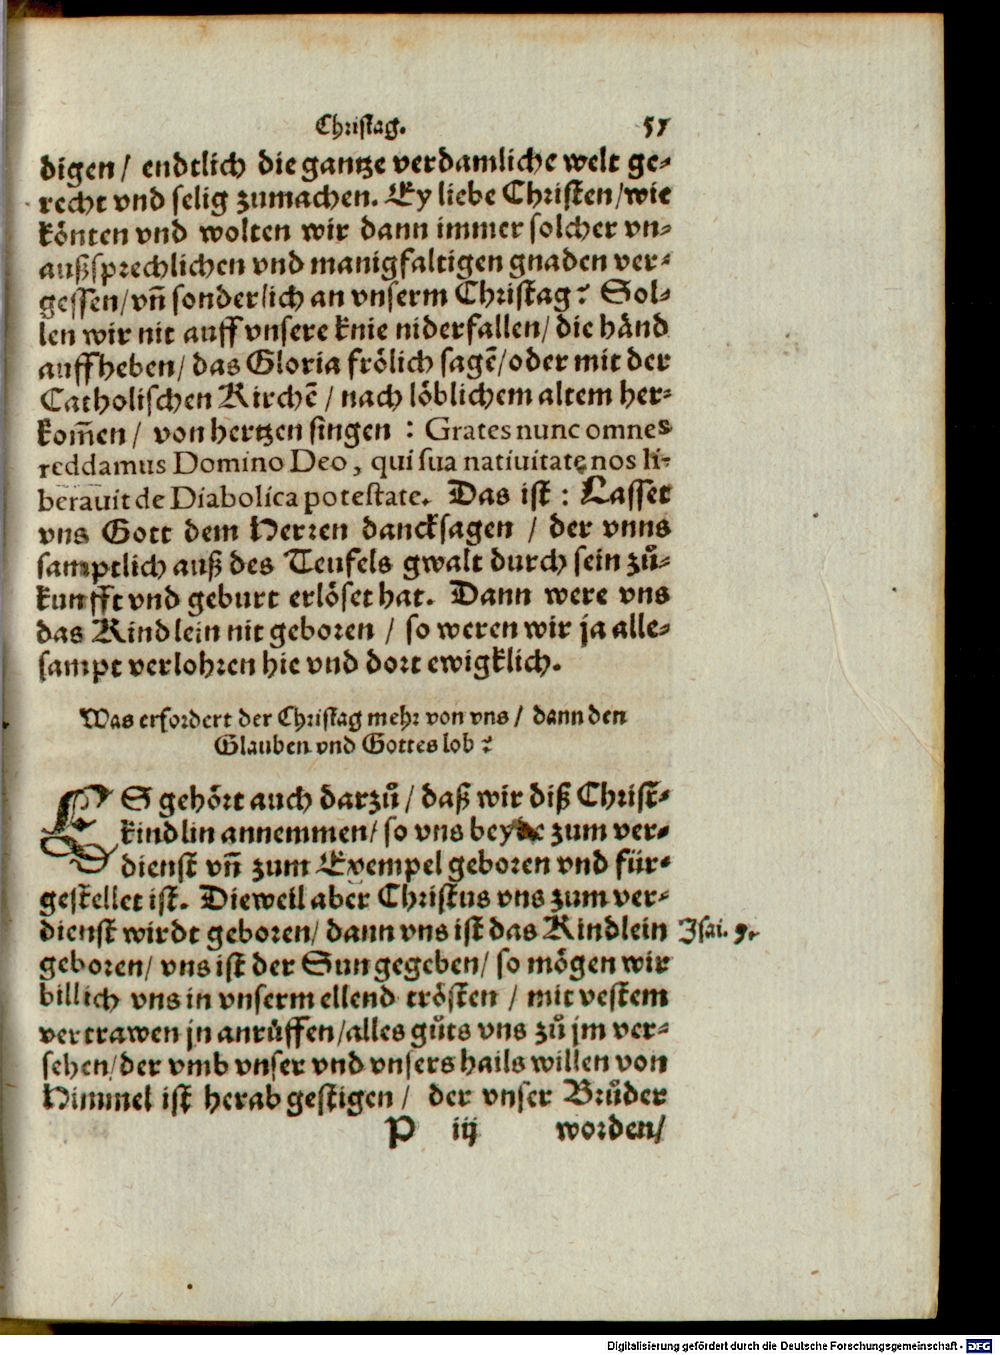 Christag. 51
digen / endtlich die gantze verdamliche welt ge-
recht vnd selig zumachen. Ey liebe Christen / wie
könten vnd wolten wir dann immer solcher vn-
außsprechlichen vnd manigfaltigen gnaden ver-
gessen / vñ sonderlich an vnserm Christag? Sol-
len wir nit auff vnsere knie niderfallen / die händ
auffheben / das Gloria frölich sagẽ / oder mit der
Catholischen Kirchẽ / nach löblichem altem her-
kom̃en / von hertzen singen : Grates nunc omnes
reddamus Domino Deo, qui sua natiuitate nos li-
berauit de Diabolica potestate. Das ist : Lasset
vns Gott dem Herren dancksagen / der vnns
samptlich auß des Teufels gwalt durch sein zů-
kunfft vnd geburt erlöset hat. Dann were vns
das Kindlein nit geboren / so weren wir ja alle-
sampt verlohren hie vnd dort ewigklich.
Was erfordert der Christag mehr von vns / dann den
Glauben vnd Gottes lob?
ES gehört auch darzů / daß wir diß Christ-
kindlin annemmen / so vns beyde zum ver-
dienst vñ zum Exempel geboren vnd für-
gestellet ist. Dieweil aber Christus vns zum ver-
dienst wirdt geboren / dann vns ist das Kindlein
Isai. 9.
geboren / vns ist der Sun gegeben / so mögen wir
billich vns in vnserm ellend trösten / mit vestem
vertrawen jn anrůffen / alles gůts vns zů jm ver-
sehen / der vmb vnser vnd vnsers hails willen von
Himmel ist herab gestigen / der vnser Brůder
P iij worden /
Digitalisierung gefördert durch die Deutsche Forschungsgemeinschaft - DFG